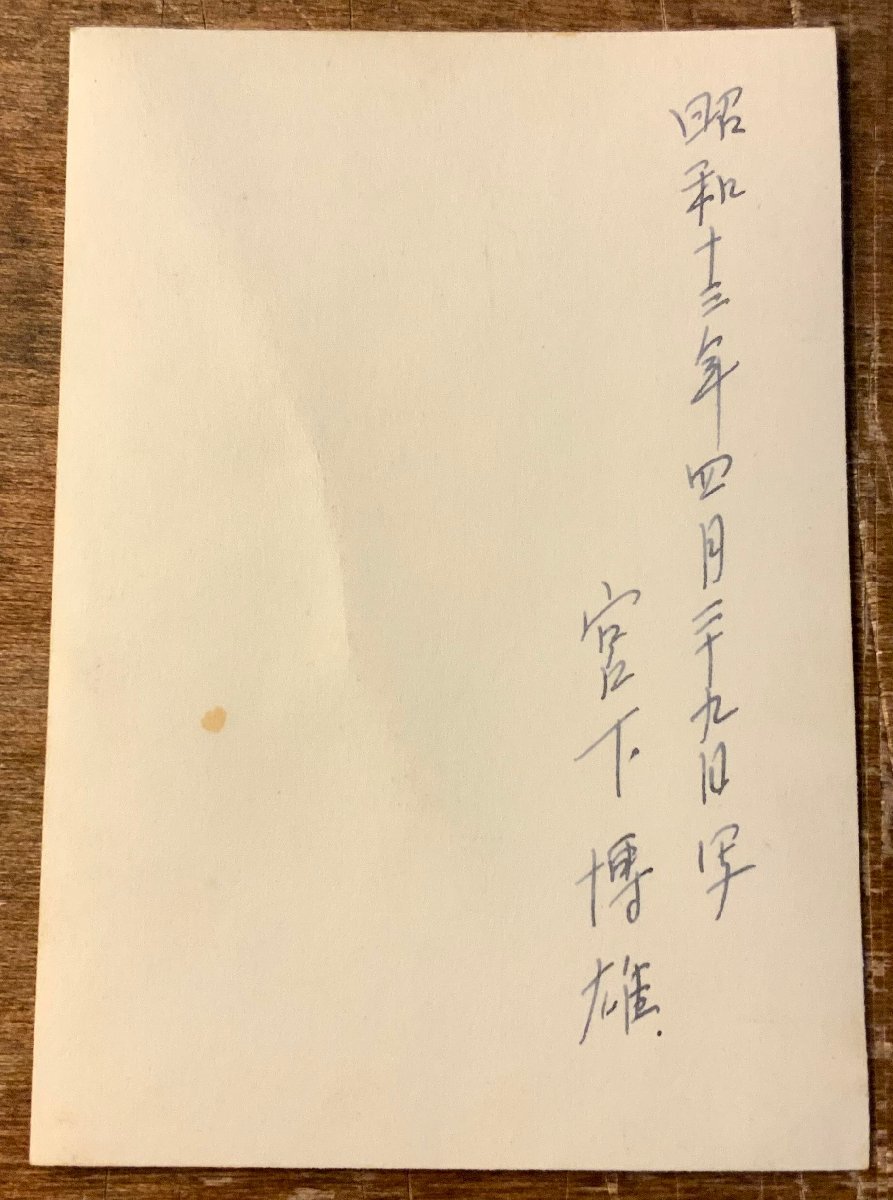 昭和十三年四月二十九日写
宮下博雄.